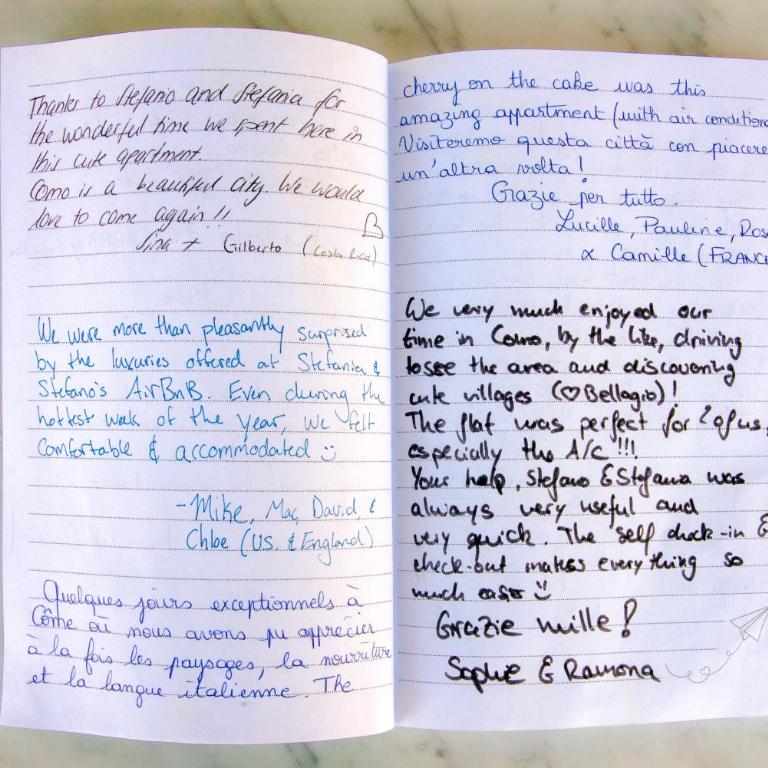 Thanks to Stefano and Stefania for
the wonderful time we spent here in
this cute apartment.
Como is a beautiful city. We would
love to come again!!
+ Gilberto (Costa Rica)
We were more than pleasantly surprised
by the luxuries offered at Stefania &
Stefano's AirBnB. Even during the
hottest week of the year, we felt
comfortable & accommodated
-Mike, Mac, David, &
Chloe (US. & England)
Quelques jours exceptionnels à
Côme où nous avons pu apprécier
à la fois les paysages, la nourriture
et la langue italienne. The
cherry on the cake was this
amazing apartment (with air condition
Visiteremo questa città con piacere
un'altra volta!
Grazie per tutto.
Lucille, Pauline, Ros
& Camille (FRANCE
We very much enjoyed our
time in Como, by the like, driving
to see the area and discovering
cute villages (♡Bellagio)!
The flat was perfect for 2 of us,
especially the A/C !!!
Your help, Stefano & Stefania was
always very useful and
very quick. The self check-in &
check-out makes everything so
much easier
Grazie mille!
Sophie & Ramona